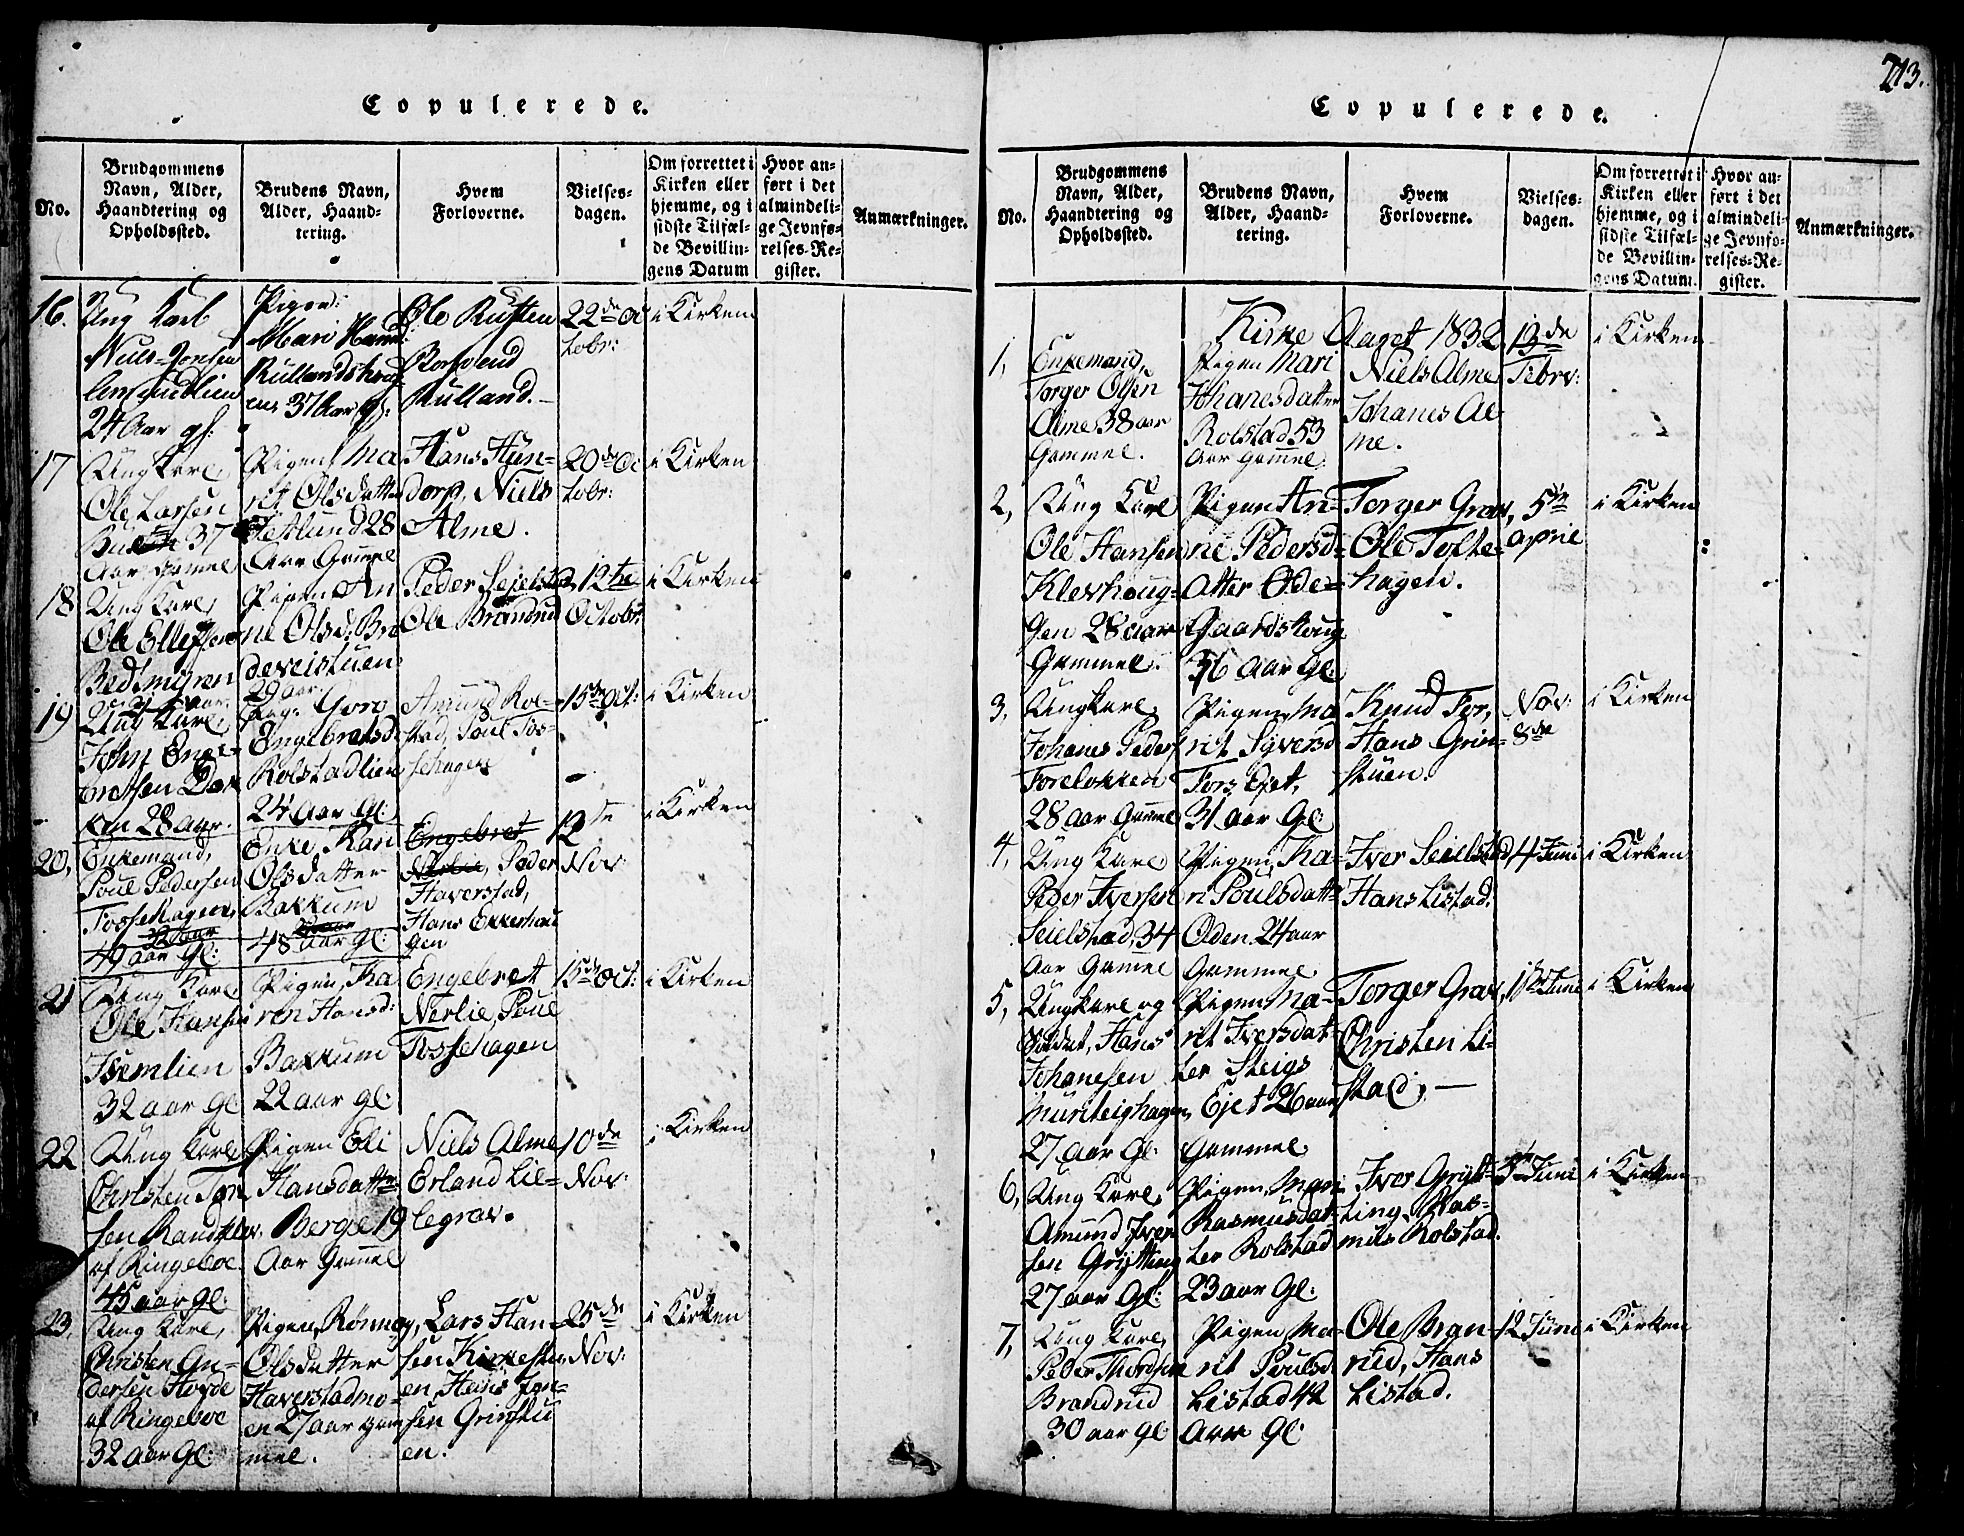 Copulerede.
No.
Brudgommens
Navn, Alder,
Haandtering og
Opholdssted.
Brudens Navn,
Alder, Haand-
tering.
Hvem
Forloverne.
Vielses-
dagen.
Om forrettet i
Kirken eller
hjemme, og i
sidste Tilfæl-
de Bevillin-
gens Datum
Hvor an-
ført i det
almindeli-
ge Jevnfø-
relses-Re-
gister.
Anmærkninger.
16.
Ung Karl
Niels Jonsen
24 Aar gl:
Pigen:
Mari Hansd:
Rullandshoug-
en 37 Aar gl:
Ole Rusten
Rulland.
22de Oc
tobr:
i Kirken
17
Ung Karl,
Ole Larsen
37
Aar Gamel
Pigen, Ma
rit Olsdatter
28
Aar Gamel
Hans Hun-
dorp, Niels
Alme.
20de Oc
tobr:
i Kirken
18
Ung Karl,
Ole Ellefsen
Pigen An
ne Olsd. Bra
deveistuen
29 aar.
Peder Seielstad,
Ole Brandrud
12te
Octobr.
i Kirken
19
Ung Karl,
John Enge-
bretsen Bak
ken 28 aar.
Pige Goro
Engebretsd
Rolstadlien
24 Aar Gl:
Amund Rol-
stad, Poul Tos-
sehagen
15de Oct:
i Kirken
20,
Enkemand,
Poul Pedersen
Tossehagen,
49 aar Gl:
Enke Kari
Olsdatter
Bakkum
48 aar gl:
Engebret
Nerlie, Peder
Haverstad,
Hans Ekkerhau
gen
12
Nov:
i Kirken
21
Ung Karl
Ole Hansen
Isumlien
32 aar gl:
Pigen, Ka
ren Hansd:
Bakkum
22 aar gl:
Engebret
Nerlie, Poul
Tossehagen
15de Oct:
i Kirken
22
Ung Karl,
Christen Tor
sen Randklev
af Ringeboe
45 aar gl:
Pigen Eli
Hansdatter
Berge 19
Aar Gamel
Niels Alme
Erland Lil-
legrav.
10de
Nov:
i Kirken
23,
Ung Karl,
Christen An-
dersen Hovde
af Ringeboe
32 aar Gl:
Pigen, Rønnoy,
Olsdatter
Haverstadmo-
en 27 aar gam
mel.
Lars Han-
sen Kirkestu
en, Hans Jon-
sen Grinstu
en:
25de
Nov:
i Kirken
213.
Copulerede.
No.
Brudgommens
Navn, Alder,
Haandtering og
Opholdssted.
Brudens Navn,
Alder, Haand-
tering.
Hvem
Forloverne.
Vielses-
dagen.
Om forrettet i
Kirken eller
hjemme, og i
sidste Tilfæl-
de Bevillin-
gens Datum.
Hvor an-
ført i det
almindeli-
ge Jevnfø-
relses-Re-
gister.
Anmærkninger.
Kirke Aaret 1832
1,
Enkemand,
Torger Olsen
Alme 38 aar
Gammel.
Pigen Mari
Johanesdatter
Rolstad 53
Aar Gammel.
Niels Alme
Johanes Al
me.
13de
Febrv:
i Kirken
2,
Ung Karl
Ole Hansen
Klevhoug-
gen 28 aar
Gammel.
Pigen An-
ne Pedersd-
atter Øde-
Gaardshoug
36 aar Gl.
Torger Grav,
Ole Tofte-
hagen.
5te
April
i Kirken
3,
Ungkarl,
Johanes Peders
Foreløkken
28 aar Gammel
Pigen Ma
rit Syversd
Fors Ejet,
31 aar Gl.
Knud For,
Hans Grin-
stuen.
Nov:
8de
i Kirken
4,
Ung Karl
Peder Iversen
Seielstad, 34
Aar Gammel
Pigen, Ka-
ri Poulsdatt:
Oden 24 aar
Gammel
Iver Seielstad
Hans Listad.
14 Juni
i Kirken
5,
Ungkarl og
Soldat, Hans
Johanesen
27 aar Gl.
Pigen Ma-
rit Iversdat-
ter Steigs
Ejet 26 aar
Gammel
Torger Grav,
Christen Li-
stad,
Juni
i Kirken
6,
Ung Karl,
Amund Iver
sen Grytting
27 aar Gl:
Pigen, Mari
Rasmusdat-
ter Rolstad
23 aar Gl:
Iver Gryt-
ting, Ras-
mus Rolstad.
Juni
i Kirken
7,
Ung Karl,
Peder Thordsen
Brandrud
30 aar gl:
Pigen Ma-
rit Poulsd
Listad 42
Aar Gl:
Ole Bran-
rud, Hans
Listad.
12 Juni
i Kirken